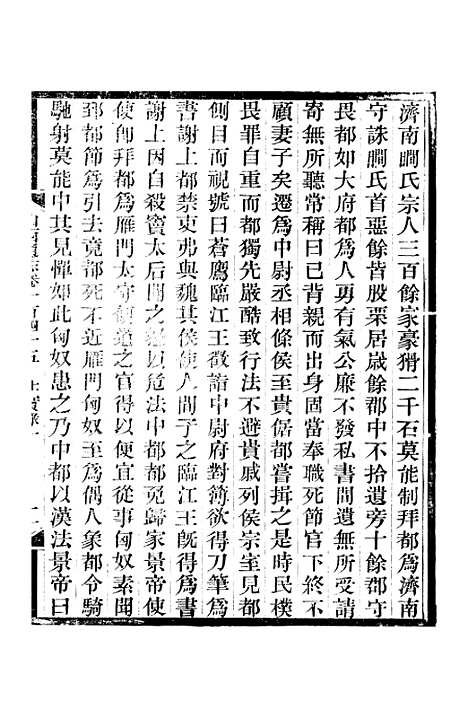 濟南瞯氏宗人三百餘家豪猾二千石莫能制拜都爲濟南
守誅瞯氏首惡餘皆股栗居歲餘郡中不拾遺旁十餘郡守
畏都如大府都爲人勇有氣公廉不發私書問遺無所受請
寄無所聽常稱曰已背親而出身固當奉職死節官下終不
顧妻子矣遷爲中尉丞相條侯至貴倨都嘗揖之是時民樸
畏罪自重而都獨先嚴酷致行法不避貴戚列侯宗室見都
側目而視號曰蒼鷹臨江王徵詣中尉府對簿欲得刀筆爲
書謝上都禁吏弗與魏其侯使人間予之臨江王旣得爲書
謝上因自殺竇太后聞之怒以危法中都都免歸家景帝使
使卽拜都爲雁門太守便道之官得以便宜從事匈奴素聞
郅都節爲引去竟都死不近雁門匈奴至爲偶人象都令騎
馳射莫能中其見憚如此匈奴患之乃中都以漢法景帝曰
卷一百四十五